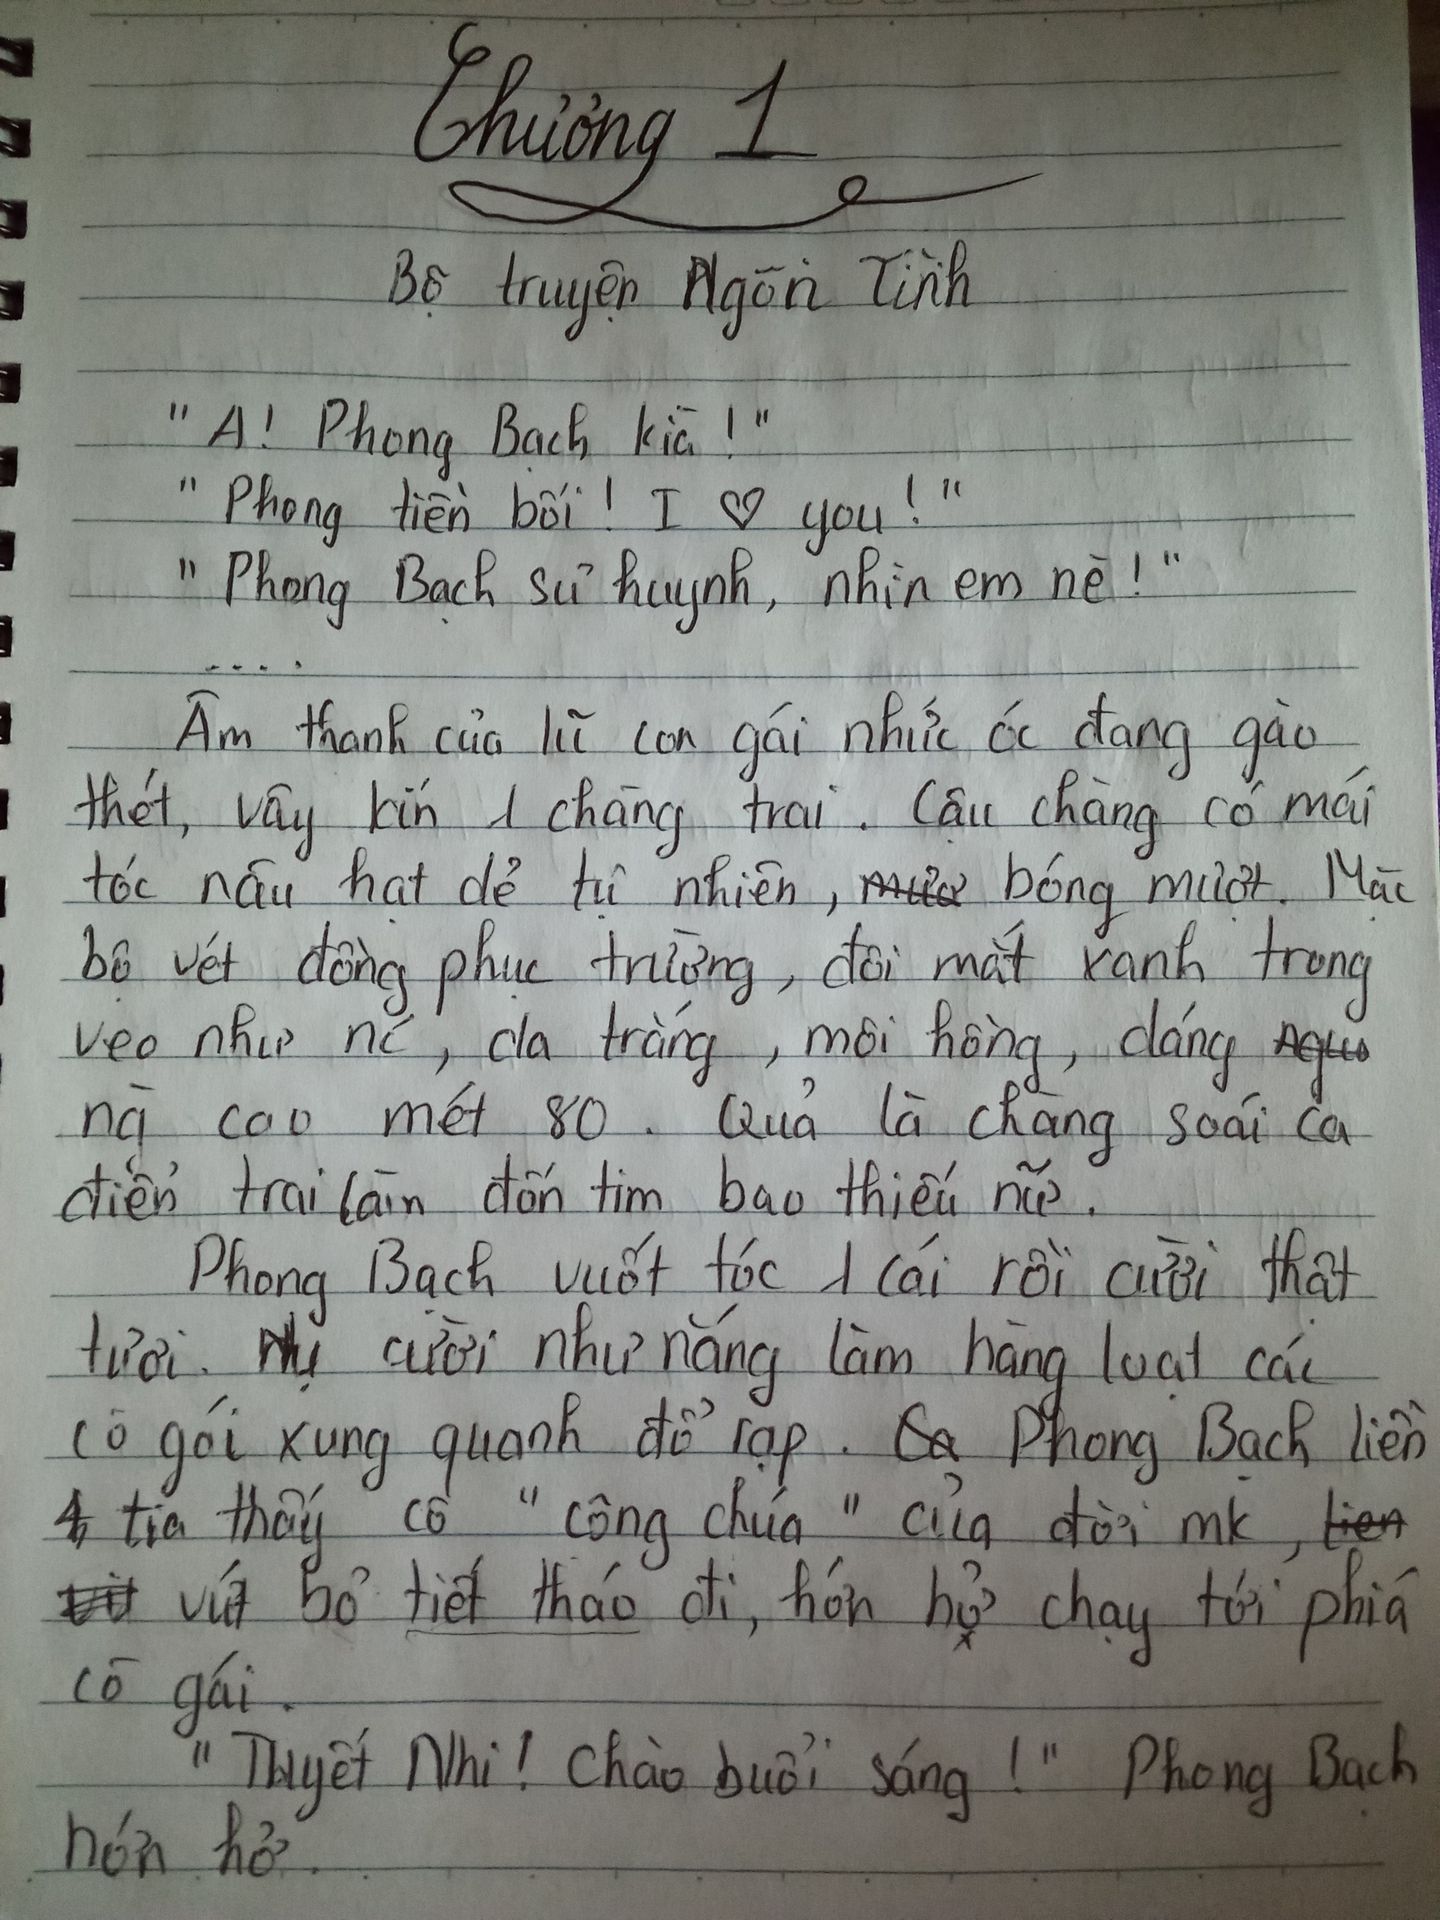 Chương 1
Bộ truyện Ngôn Tình
"A! Phong Bạch kìa!"
"Phong tiền bối! I ♡ you!"
"Phong Bạch sư huynh, nhìn em nè!"
....
Âm thanh của lũ con gái nhức óc đang gào
thét, vây kín 1 chàng trai. Cậu chàng có mái
tóc nâu hạt dẻ tự nhiên, bóng mượt. Mặc
bộ vét đồng phục trường, đôi mắt xanh trong
veo như nc, da trắng, môi hồng, dáng
ng cao mét 80. Quả là chàng soái ca
điển trai làm đốn tim bao thiếu nữ.
Phong Bạch vuốt tóc 1 cái rồi cười thật
tươi. Nụ cười như nắng làm hàng loạt các
cô gái xung quanh đổ rạp. Phong Bạch liền
tia thấy cô "công chúa" của đời mk,
vứt bỏ tiết tháo đi, hớn hở chạy tới phía
cô gái.
"Tuyết Nhi! Chào buổi sáng!" Phong Bạch
hớn hở.